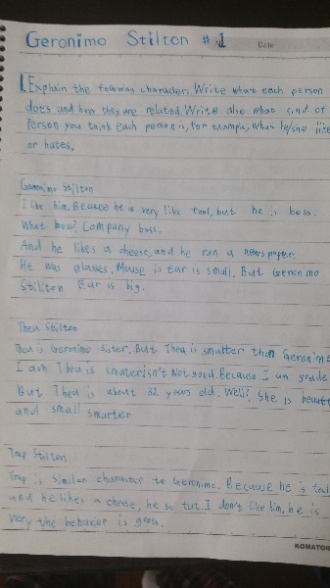 Geronimo Stilton #1
Date
1. Explain the following character. Write what each person
does and how they are related. Write also what kind of
Person you think each person is, for example, what he/she like
or hates.
Geronimo Stilton
I like him. Because he is very like fool, but he is boss.
What boss? Company boss.
And he likes a cheese, and he run a newspaper.
He was glasses, Mouse is Ear is small. But Geronimo
Stillton Ear is big.
Thea Stilton
Thea is Geronimo Sister. But Thea is smatter than
I am Thea is Not good. Because I am grade
But Thea is about 32 years old. Well? She is
and small smarter
Trap Stilton
Trap is similar character to Geronimo. Because he is
and he likes a cheese, he so I don't like him, he is
very the behavior is gross.